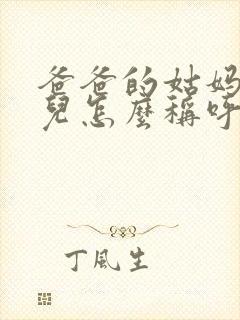 爸爸的姑妈
兒怎麼稱呼
丁風生